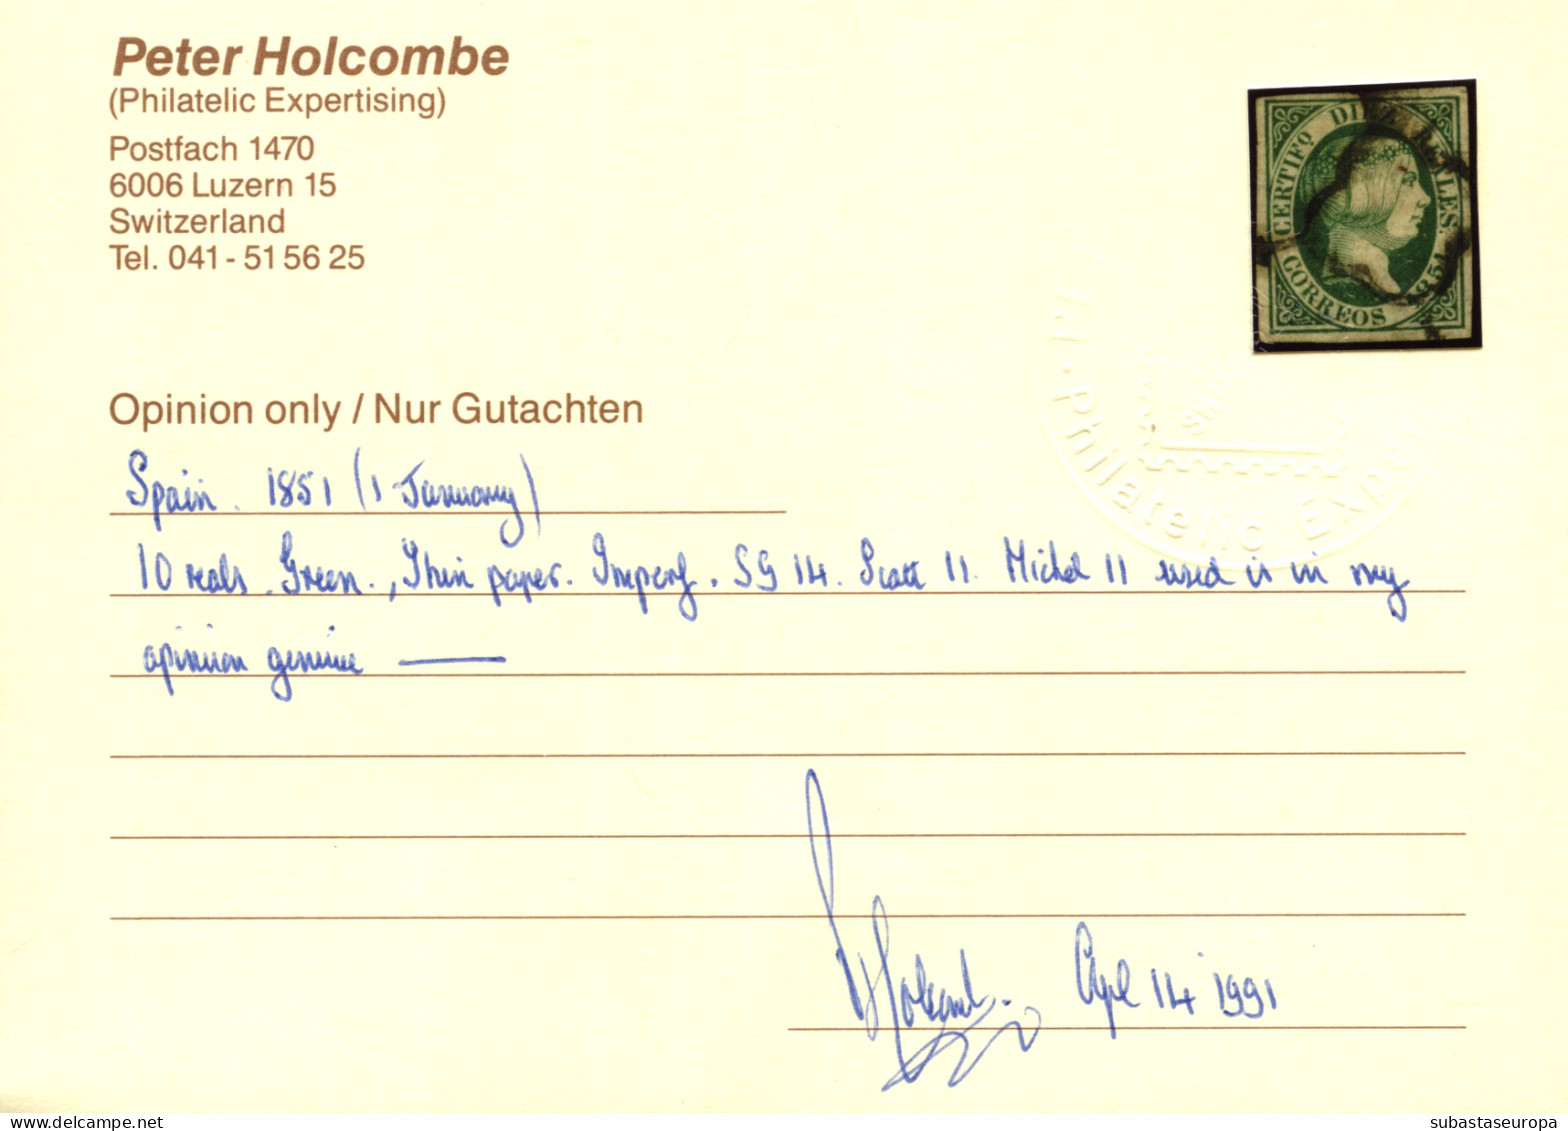 Peter Holcombe
(Philatelic Expertising)
Postfach 1470
6006 Luzern 15
Switzerland
Tel. 041 - 51 56 25
CERTIFO DIEZ REALES.
CORREOS 1851
Philatelic Exper
Opinion only / Nur Gutachten
Spain. 1851 (1 January)
10 reals. Green., Thin paper. Imperf. SG 14. Scott 11. Michel 11 used is in my
opinion genuine
Holcombe. April 14 1991
subastaseuropa